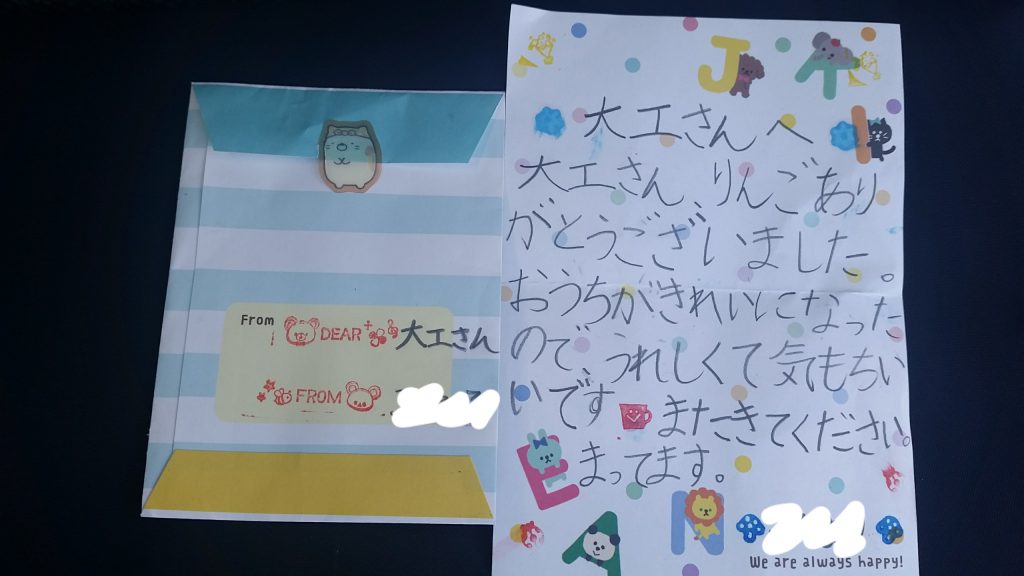 From
DEAR 大工さん
FROM
J
大工さんへ
大工さん、りんごあり
がとうございました。
おうちがきれいになった
ので、うれしくて気もちい
いです またきてください。
まってます。
E
A
N
We are always happy!